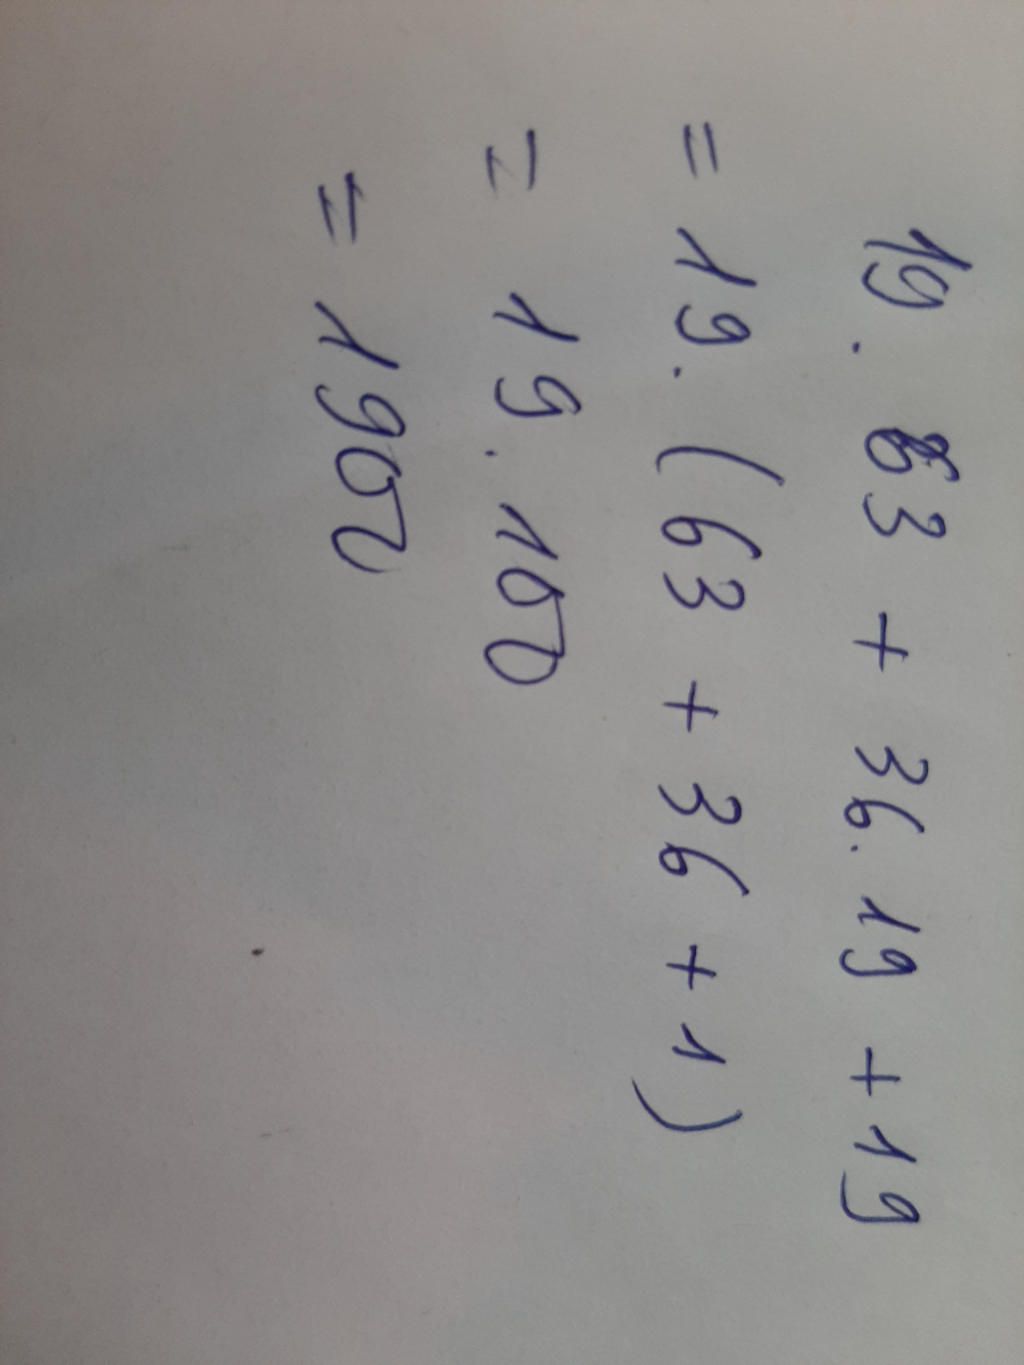 19. 63 + 36. 19 + 19
= 19. (63 + 36 + 1)
= 19. 100
= 1900